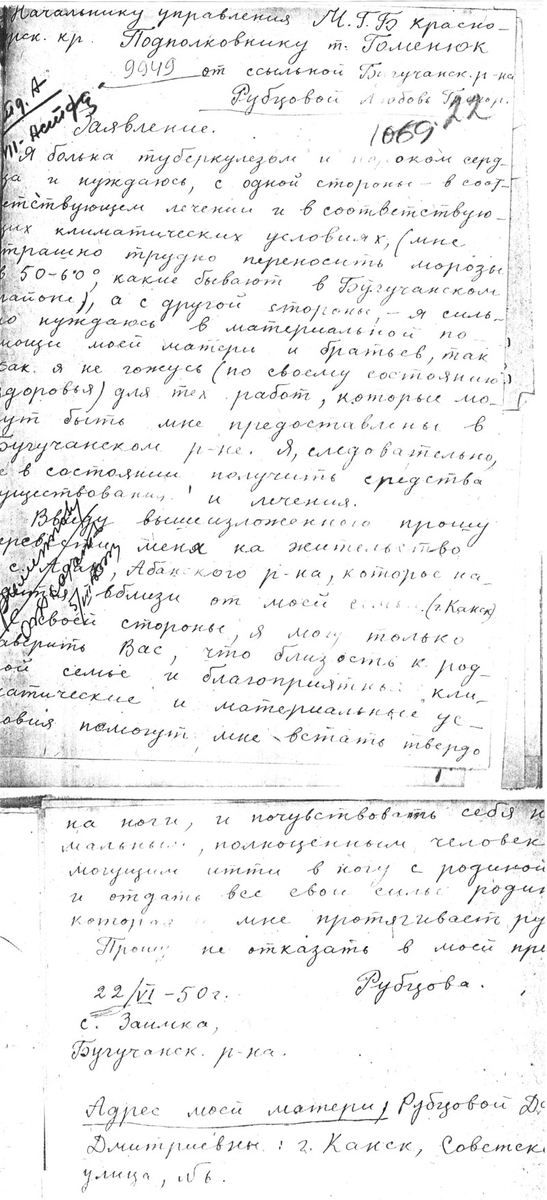 Начальнику управления М.Г.Б красно-
рск. кр. Подполковнику т. Гоменюк
9949 от ссыльной Бугучанск. р-на
Рубцовой Любовь
1069 22
Заявление.
Я больна туберкулезом и пороком серд-
ца и нуждаюсь, с одной стороны – в соот-
етствующем лечении и в соответствую-
щих климатических условиях, (мне
трашно трудно переносить морозы
в 50-60°, какие бывают в Бугучанском
районе), а с другой стороны, – я силь-
но нуждаюсь в материальной по
мощи моей матери и братьев, так
как я не гожусь (по своему состоянию
здоровья) для тех работ, которые мо-
гут быть мне предоставлены в
Бугучанском р-не. Я, следовательно,
е в состоянии получить средства
уществования и лечения.
Ввиду вышеизложенного прошу
еревести меня на жительство
с. Абан, Абанского р-на, которое на-
вблизи от моей семьи (г. Канск)
своей стороны, я могу только
аверить Вас, что близость к род-
ной семье и благоприятные кли-
атические и материальные ус-
овия помогут мне встать твердо
на ноги, и почувствовать себя н
мальным, полноценным человек
могущим итти в ногу с родиной
и отдать все свои силы родин
которая мне протягивает ру
Прошу не отказать в моей про
22/VI – 50 г. Рубцова.
с. Заимка,
Бугучанск. р-на.
Адрес моей матери, Рубцовой
Дмитриевны: г. Канск, Советск
улица,